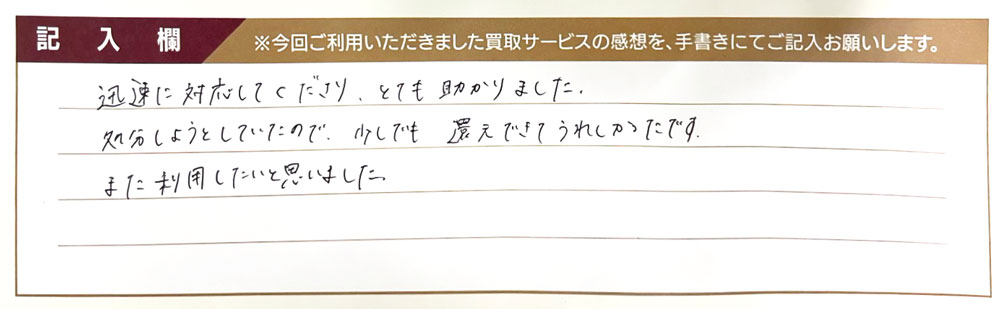 記入欄 ※今回ご利用いただきました買取サービスの感想を、手書きにてご記入お願いします。
迅速に対応してくださり、とても助かりました。
処分しようとしていたので、少しでも還元できてうれしかったです。
また利用したいと思いました。